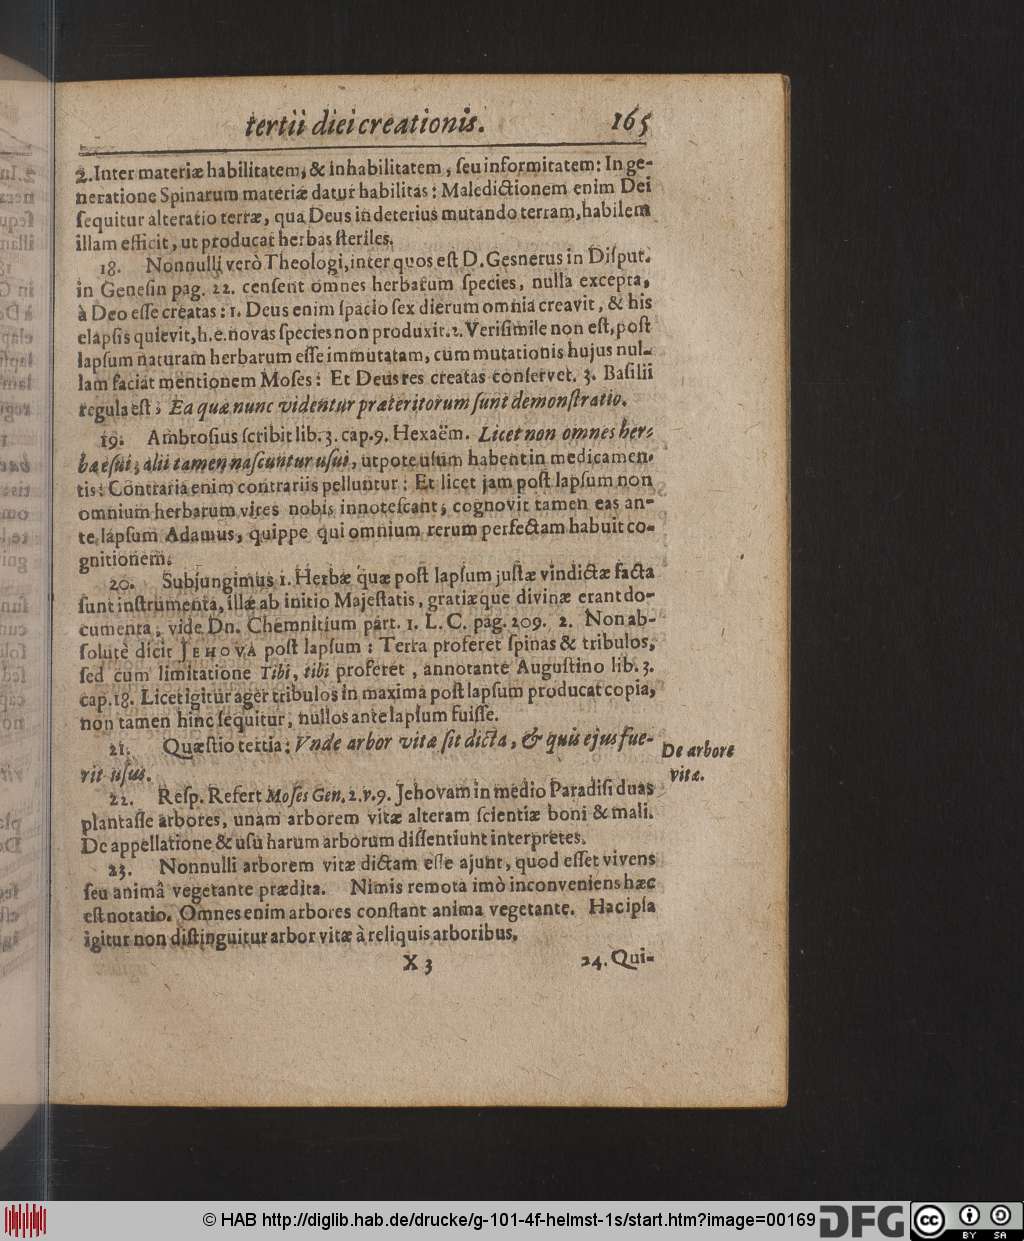 tertii diei creationis. 165
2. Inter materiæ habilitatem, & inhabilitatem, ſeu informitatem: In ge-
neratione Spinarum materiæ datur habilitas: Maledictionem enim Dei
ſequitur alteratio terræ, qua Deus in deterius mutando terram, habilem
illam efficit, ut producat herbas ſteriles.
18. Nonnulli verò Theologi, inter quos eſt D. Geſnerus in Diſput.
in Geneſin pag. 22. cenſent omnes herbarum ſpecies, nulla excepta,
à Deo eſſe creatas: 1. Deus enim ſpacio ſex dierum omnia creavit, & his
elapſis quievit, h. e. novas ſpecies non produxit. 2. Veriſimile non eſt, poſt
lapſum naturam herbarum eſſe immutatam, cùm mutationis hujus nul-
lam faciat mentionem Moſes: Et Deus res creatas conſervet. 3. Baſilii
regula eſt; Ea quæ nunc videntur præteritorum ſunt demonſtratio.
19. Ambroſius ſcribit lib. 3. cap. 9. Hexaëm. Licet non omnes her-
bæ eſui; alii tamen naſcuntur uſui, utpote uſum habent in medicamen-
tis: Contraria enim contrariis pelluntur: Et licet jam poſt lapſum non
omnium herbarum vires nobis innoteſcant, cognovit tamen eas an-
te lapſum Adamus, quippe qui omnium rerum perfectam habuit co-
gnitionem.
20. Subjungimus 1. Herbæ quæ poſt lapſum juſtæ vindictæ facta
ſunt inſtrumenta, illæ ab initio Majeſtatis, gratiæque divinæ erant do-
cumenta, vide Dn. Chemnitium part. 1. L. C. pag. 209. 2. Non ab-
ſolutè dicit JEHOVA poſt lapſum: Terra proferet ſpinas & tribulos,
ſed cum limitatione Tibi, tibi proferet, annotante Auguſtino lib. 3.
cap. 18. Licet igitur ager tribulos in maxima poſt lapſum producat copia,
non tamen hinc ſequitur, nullos ante lapſum fuiſſe.
21. Quæſtio tertia: Vnde arbor vitæ ſit dicta, & quis ejus fue-
rit uſus.
De arbore
vitæ.
22. Reſp. Refert Moſes Gen. 2. v. 9. Jehovam in medio Paradiſi duas
plantaſſe arbores, unam arborem vitæ alteram ſcientiæ boni & mali.
De appellatione & uſu harum arborum diſſentiunt interpretes.
23. Nonnulli arborem vitæ dictam eſſe ajunt, quod eſſet vivens
ſeu animâ vegetante prædita. Nimis remota imò inconveniens hæc
eſt notatio. Omnes enim arbores conſtant anima vegetante. Hac ipſa
igitur non diſtinguitur arbor vitæ à reliquis arboribus.
X 3 24. Qui-
© HAB http://diglib.hab.de/drucke/g-101-4f-helmst-1s/start.htm?image=00169 DFG cc BY SA